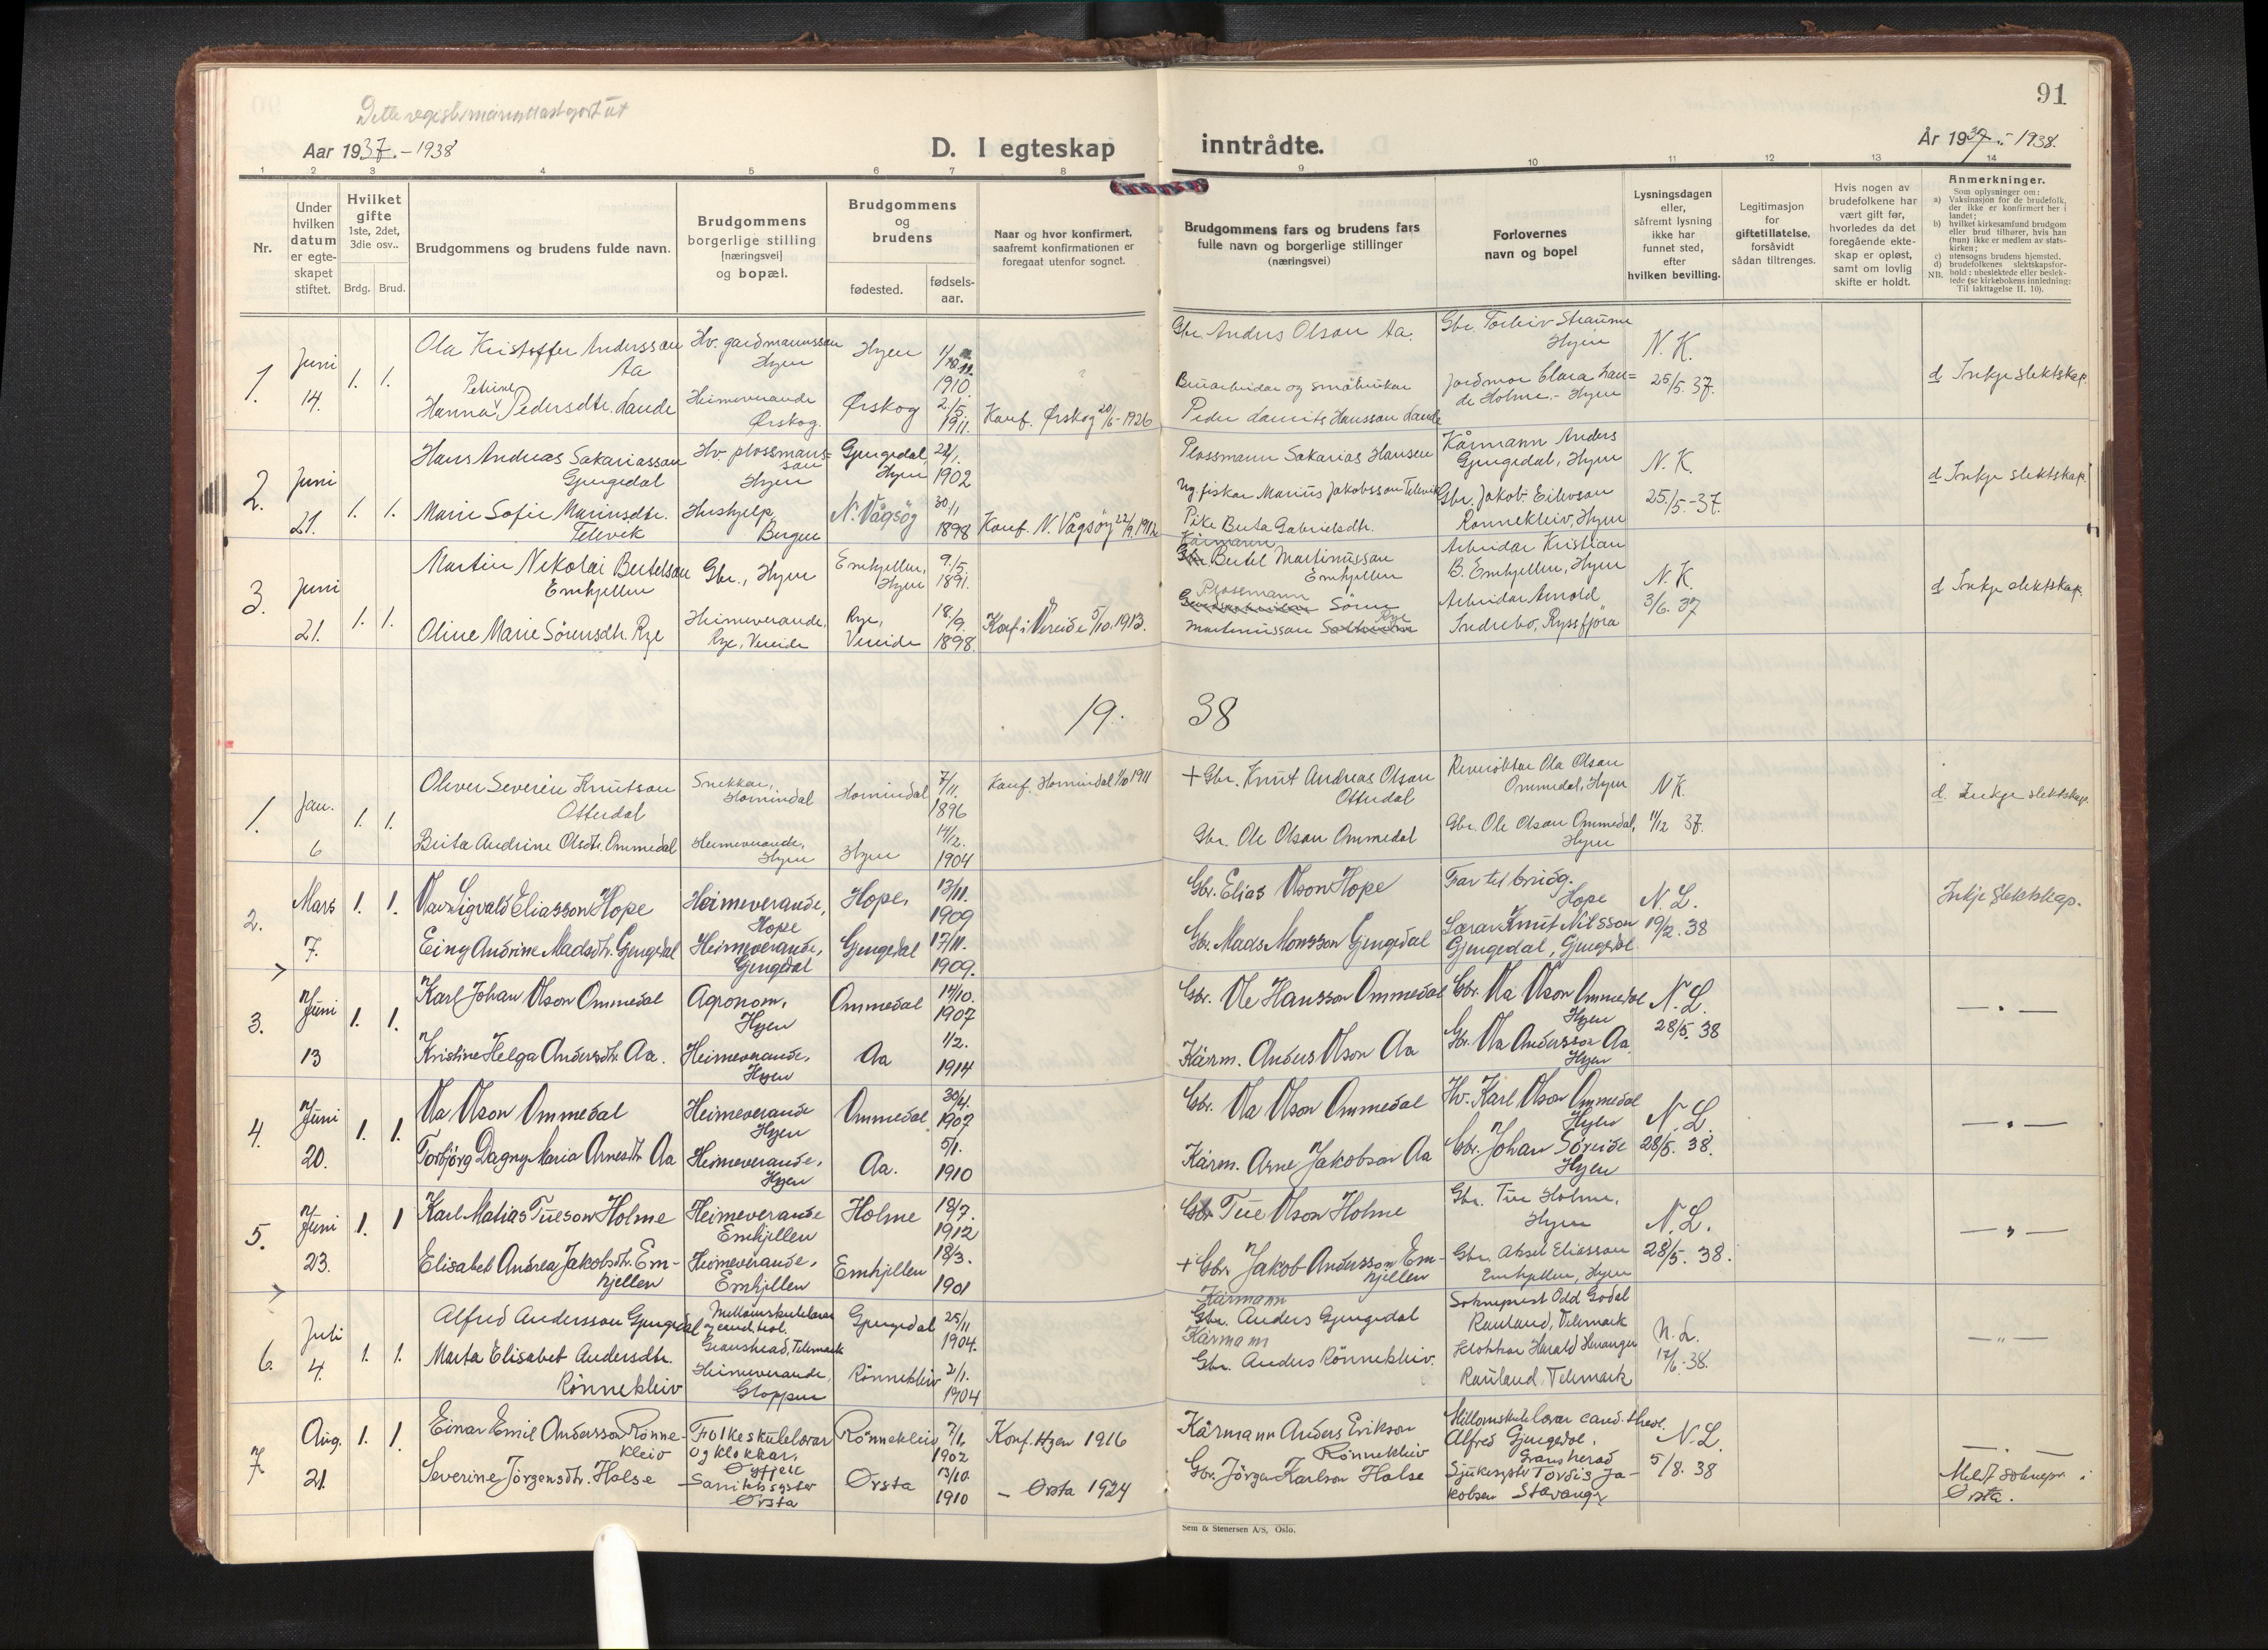 91
Aar 1937.-1938
D. I egteskap
inntrådte.
År 1937.-1938.
1 2 3 4 5 6 7 8 9 10 11 12 13 14
Nr.
Under hvilken datum er egte-skapet stiftet.
Hvilket gifte 1ste, 2det, 3die osv..
Brdg. Brud.
Brudgommens og brudens fulde navn.
Brudgommens borgerlige stilling [næringsvei] og bopæl.
Brudgommens og brudens
fødested.
fødsels-aar.
Naar og hvor konfirmert, saafremt konfirmationen er foregaat utenfor sognet.
Brudgommens fars og brudens fars fulle navn og borgerlige stillinger (næringsvei)
Forlovernes navn og bopel
Lysningsdagen eller, såfremt lysning ikke har funnet sted, efter hvilken bevilling.
Legitimasjon for giftetillatelse, forsåvidt sådan tiltrenges.
Hvis nogen av brudefolkene har vært gift før, hvorledes da det foregående ekte-skap er opløst, samt om lovlig skifte er holdt.
Anmerkninger.
Som oplysninger om:
a) Vaksinasjon for de brudefolk, der ikke er konfirmert her i landet;
b) hvilket kirkesamfund brudgom eller brud tilhører, hvis han (hun) ikke er medlem av stats-kirken;
c) utensogns brudens hjemsted.
d) brudefolkenes slektskapsfor-hold: ubeslektede eller beslek-tede (se kirkebokens innledning:
NB. Til iakttagelse II. 10).
1. Juni 14. 1. 1.
Ola Kristoffer Andersson Aa
Hv. gardmannsson Hyen
Hyen
1910.
Gbr. Anders Olson Aa.
Gbr. Torleiv Straume Hyen
N. K. 25/5. 37.
d Inkje slektskap.
Hanna Petrine Pedersdtr. Lande
Heimeverande Ørskog.
Ørskog
2/5. 1911.
Konf. Ørskog 1926
Peder Laurits Hansson Lande
2. Juni 21. 1. 1.
Hans Andreas Sakariasson Gjengedal
Hv. plassmans-son Hyen
Gjengedal, Hyen
22/1. 1902
Plassmann Sakarias Hansen
Kårmann Anders Gjengedal, Hyen
N. K. 25/5.-37.
d Inkje slektskap.
Marie Sofie Mariusdtr. Televik
Hushjelp, Bergen
N. Vågsöy
30/11 1898
Konf. N. Vågsöy 22/9. 1912
Ug. fiskar Marius Jakobsson Televik
Pike Berta Gabrielsdtr.
Gbr. Jakob Eilevson Rönnekleiv, Hyen
3. Juni 21. 1. 1.
Martin Nikolai Bertelson Emhjellen
Gbr., Hyen
Emhjellen, Hyen
9/5. 1891.
Kårmann Bertel Martinusson Emhjellen
Arbeidar Kristian B. Emhjellen, Hyen
N. K. 3/6. 37
d Inkje slektskap.
Oline Marie Sörensdtr. Rye
Heimeverande, Rye, Vereide
Rye, Vereide
18/9. 1898.
Konf. i Vereide 5/10. 1913.
Plassmann Sören Martinusson Rye
Arbeidar Arnold Indrebö, Ryssfjöra
19. 38
1. Jan. 6 1. 1.
Oliver Severin Knutson Otterdal
Snekkar, Hornindal
Hornindal
7/11. 1896
Konf. Hornindal 1/10 1911
+ Gbr. Knut Andreas Olson Otterdal
Ola Olson Ommedal, Hyen
N K. 11/12 37.
d. Inkje slektskap.
Berta Andrine Olsdtr. Ommedal
Heimeverande, Hyen
Hyen
14/2. 1904
Gbr. Ole Olson Ommedal
Gbr. Ole Olson Ommedal, Hyen
2. Mars 7. 1. 1.
Olav Sigvald Eliasson Hope
Heimeverande, Hope
Hope,
13/11. 1909
Gbr. Elias Olson Hope
Far til brudg. Hope
N. L. 19/2. 38
Inkje slektskap.
Eing Andrine Madsdtr. Gjengedal
Heimeverande, Gjengedal
Gjengedal
17/11. 1909.
Gbr. Mads Monsson Gjengedal
Lærar Knut Nilsson Gjengedal, Gjengedal.
3. Juni 13 1. 1.
Karl Johan Olson Ommedal
Agronom, Hyen
Ommedal
14/10. 1907
Gbr. Ole Hansson Ommedal
Gbr. Ola Olson Ommedal Hyen
N. L. 28/5. 38
— " —
Kristine Helga Andersdtr. Aa.
Heimeverande, Hyen
Aa
1/2. 1914
Kårm. Anders Olson Aa
Gbr. Ola Andersson Aa, Hyen
4. Juni 20. 1. 1.
Ola Olson Ommedal
Heimeverande Hyen
Ommedal
30/4. 1907
Gbr. Ola Olson Ommedal
Hv. Karl Olson Ommedal Hyen
N. L. 28/5. 38.
— " —
Torbjörg Dagny Maria Arnesdtr Aa
Heimeverande, Hyen
Aa.
5/1. 1910
Kårm. Arne Jakobson Aa
Gbr. Johan Söreide Hyen
5. Juni 23. 1. 1
Karl Matias Tueson Holme
Heimeverande Emhjellen
Holme
18/7. 1912
Gbr Tue Olson Holme
Gbr. Tue Holme, Hyen
N. L. 28/5. 38.
— " —
Elisabet Andrea Jakobsdtr. Em-hjellen
Heimeverande, Emhjellen
Emhjellen
18/3. 1901
+ Gbr. Jakob Andersson Em-hjellen
Gbr. Aksel Eliasson Emhjellen, Hyen
6. Juli 4. 1. 1.
Alfred Andersson Gjengedal
Mellomskulelærar og cand. teol. Gransherad, Telemark
Gjengedal
25/11 1904.
Kårmann Gbr. Anders Gjengedal
Sokneprest Odd Godal Rauland, Telemark
N. L. 17/6.-38.
— " —
Marta Elisabet Andersdtr. Rönnekleiv
Heimeverande, Gloppen
Rönnekleiv
2/1. 1904
Kårmann Gbr. Anders Rönnekleiv.
Klokkar Harald Rauland, Telemark
7. Aug. 21. 1. 1.
Einar Emil Andersson Rönne-kleiv
Folkeskulelærar og klokkar,
Rönnekleiv
1902
Konf. Hyen 1916
Kårmann Anders Erikson Rönnekleiv
Millomskulelærar cand. theol. Alfred Gjengedal, Gransherad
N. L. 5/8. 38
— " —
Severine Jörgensdtr. Halse
Sanitetssyster Ørsta
Ørsta
13/10. 1910
— Ørsta 1924
Gbr. Jörgen Karlson Halse
Sjukesyster Tordis Ja-kobsen Stavanger
Meldt soknepr. i Ørsta.
Sem & Stenersen A/S, Oslo.